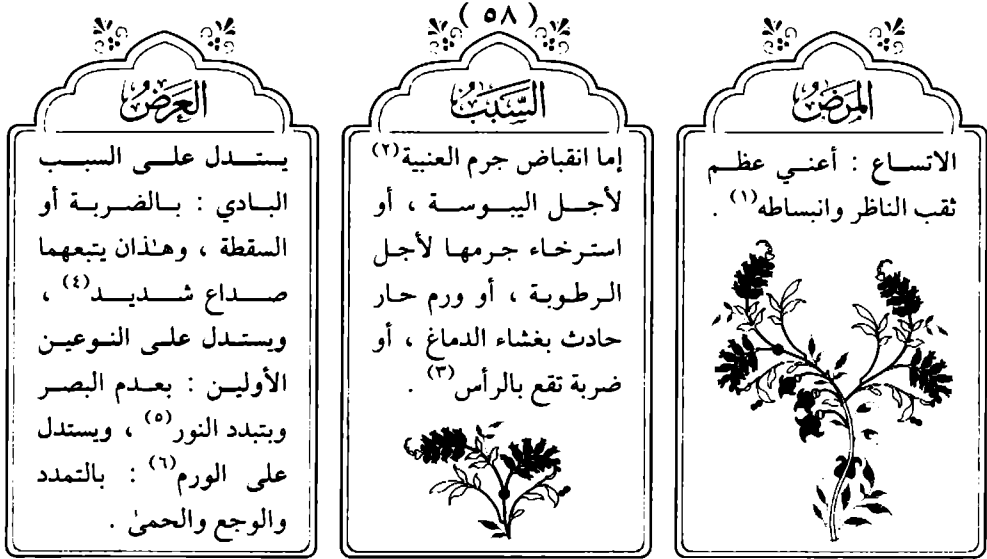 ( ٥٨ )
المَرَضُ
الاتساع : أعني عظم
ثقب الناظر وانبساطه(١) .
السَّبَبُ
إما انقباض جرم العنبية(٢)
لأجل اليبوسة ، أو
استرخاء جرمها لأجل
الرطوبة ، أو ورم حار
حادث بغشاء الدماغ ، أو
ضربة تقع بالرأس(٣) .
العَرَضُ
يستدل على السبب
البادي : بالضربة أو
السقطة ، وهٰذان يتبعهما
صداع شديد(٤) ،
ويستدل على النوعين
الأولين : بعدم البصر
وبتبدد النور(٥) ، ويستدل
على الورم(٦) : بالتمدد
والوجع والحمىٰ .